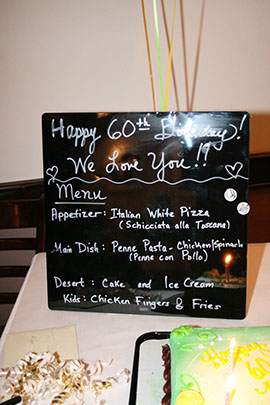 Happy 60th Birthday!
We Love You!!
Menu
Appetizer: Italian White Pizza
(Schicciata alla Toscane)
Main Dish: Penne Pasta - Chicken/Spinach
(Penne con Pollo)
Desert: Cake and Ice Cream
Kids: Chicken Fingers & Fries
Happy
60